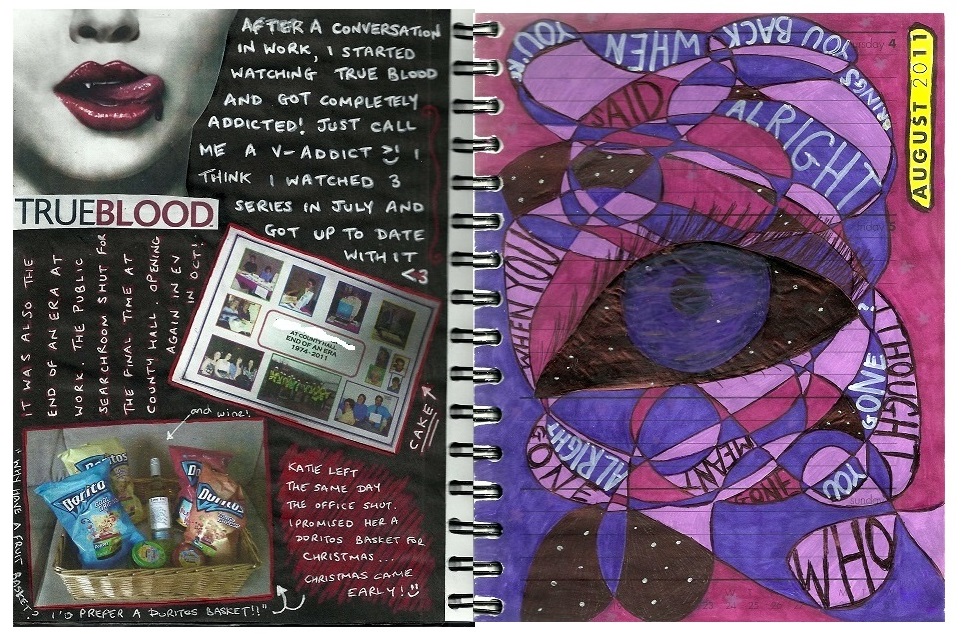 AFTER A CONVERSATION
IN WORK, I STARTED
WATCHING TRUE BLOOD
AND GOT COMPLETELY
ADDICTED! JUST CALL
ME A V-ADDICT >:) I
THINK I WATCHED 3
SERIES IN JULY AND
GOT UP TO DATE
WITH IT
<3
TRUEBLOOD.
IT WAS ALSO THE
END OF AN ERA AT
WORK. THE PUBLIC
SEARCHROOM SHUT FOR
THE FINAL TIME AT
COUNTY HALL. OPENING
AGAIN IN EV
IN OCT!
AT COUNTY HALL
END OF AN ERA
1974-2011
CAKE
and wine!
Doritos
Doritos
Doritos
KATIE LEFT
THE SAME DAY
THE OFFICE SHUT.
I PROMISED HER A
DORITOS BASKET FOR
CHRISTMAS...
CHRISTMAS CAME
EARLY! :)
"WHY HAVE A FRUIT BASKET?
I'D PREFER A DORITOS BASKET!!"
AUGUST 2011
4
friday 5
sunday
23 24
WHO
SAID
ALRIGHT
BRINGS
YOU BACK
WHEN
YOU'RE
GONE?
I THOUGHT
YOU
MEANT
GONE
ALRIGHT
WHEN YOU